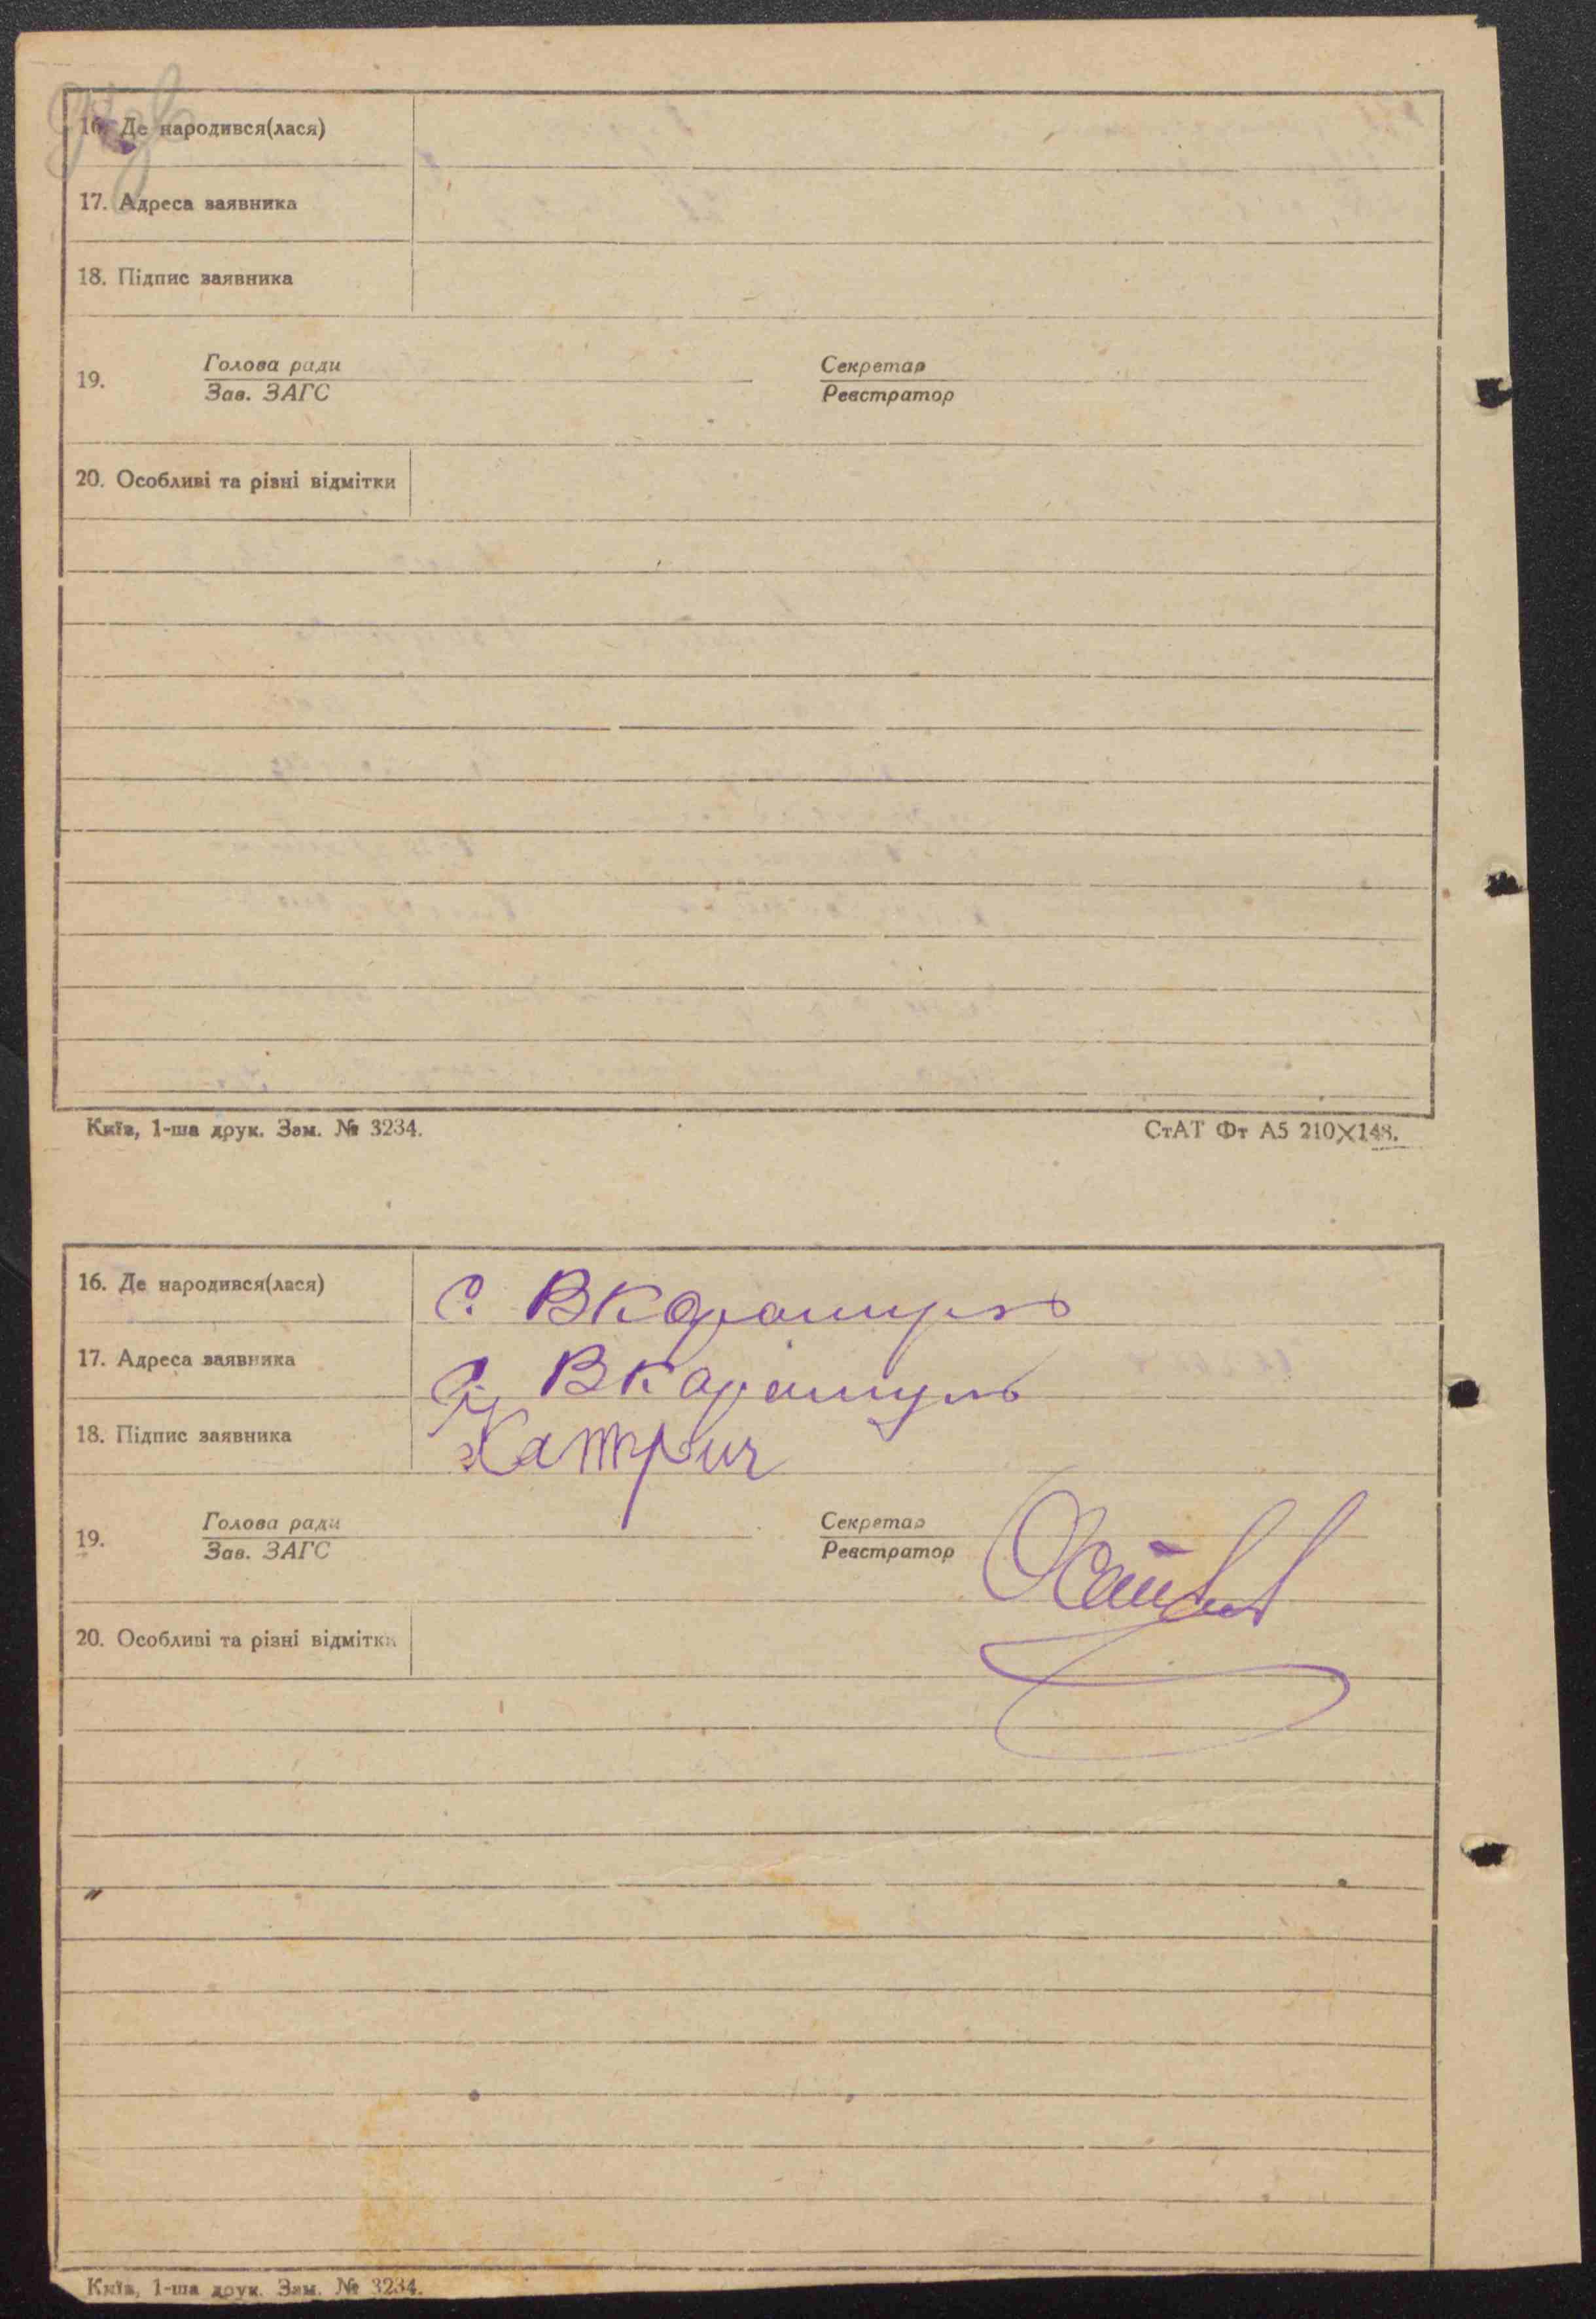 16. Де народився(лася)
17. Адреса заявника
18. Підпис заявника
19. Голова ради Секретар
Зав. ЗАГС Реєстратор
20. Особливі та різні відмітки
Київ, 1-ша друк. Зам. № 3234. СтАТ Фт А5 210×148.
16. Де народився(лася) с. ВКаратуль
17. Адреса заявника с. ВКаратуль
18. Підпис заявника Хатрич
19. Голова ради Секретар
Зав. ЗАГС Реєстратор
20. Особливі та різні відмітки
Київ, 1-ша друк. Зам. № 3234.